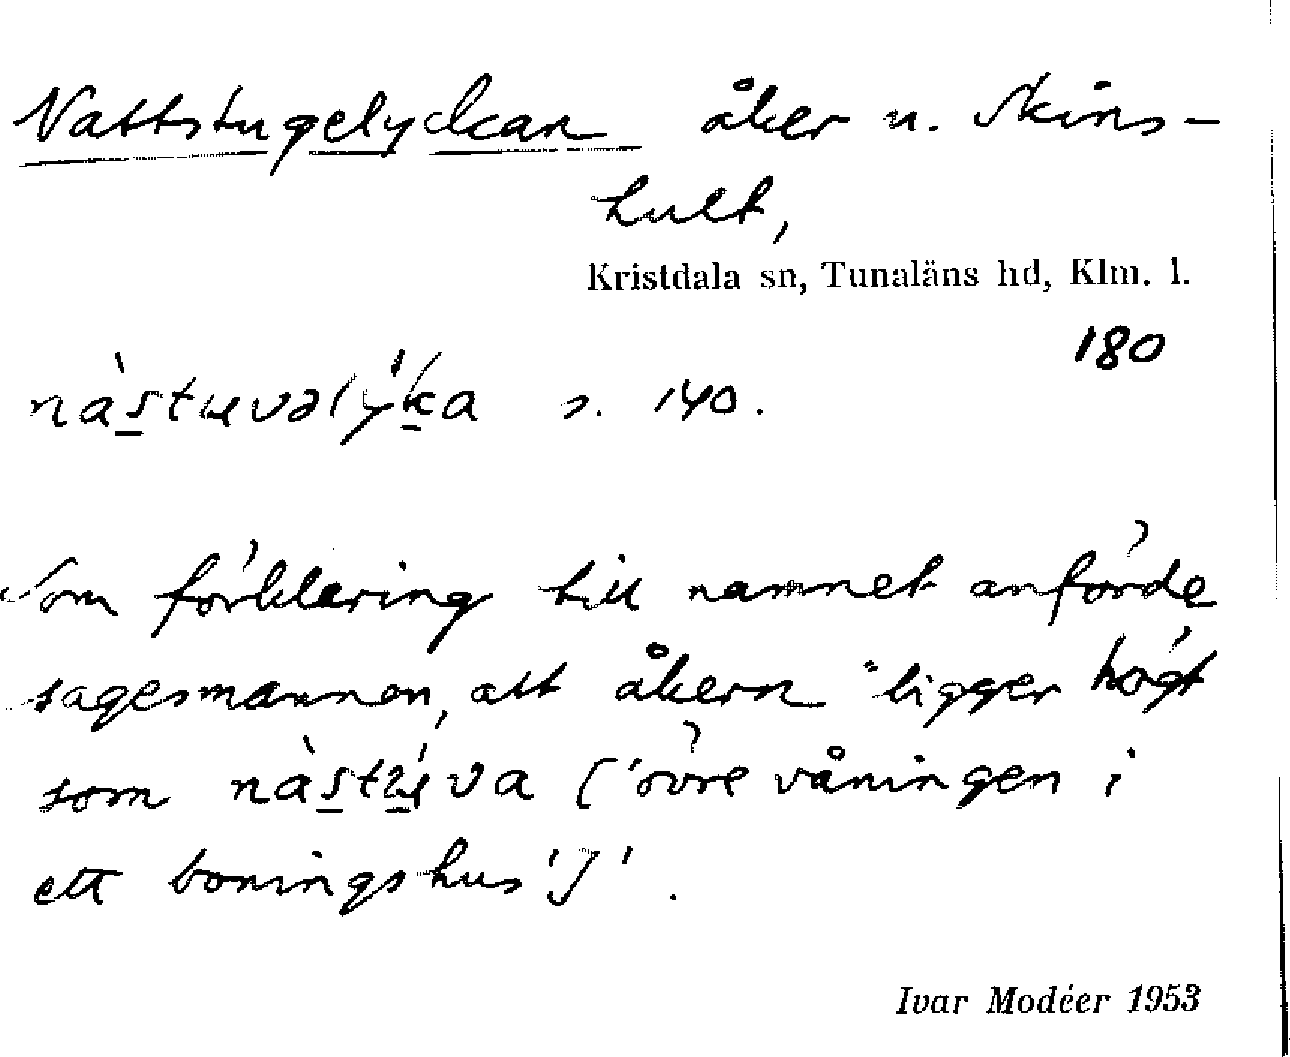 Nattstugelyckan åker u. Skins-
hult,
Kristdala sn, Tunaläns hd, Klm. l.
180
nàstuvəlýka s. 140.
Som förklaring till namnet anförde
sagesmannen, att åkern "ligger högt
som nàstúva ['övre våningen i
ett boningshus']'.
Ivar Modéer 1953